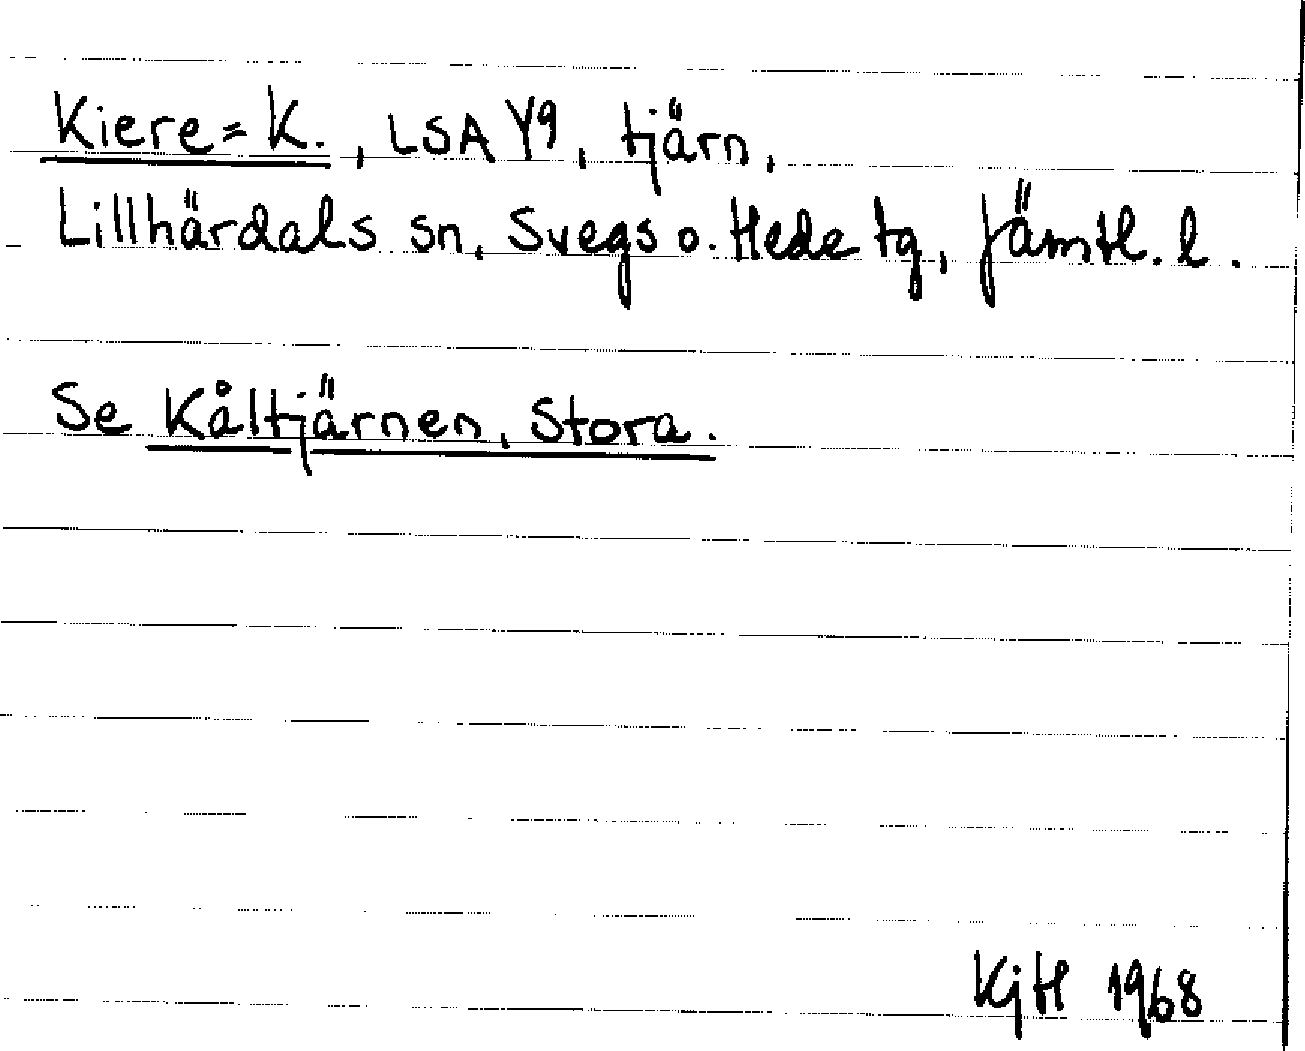 Kiere=K., LSA Y9, tjärn,
Lillhärdals sn, Svegs o. Hede tg, Jämtl. l.
Se Kåltjärnen, Stora.
KjH 1968